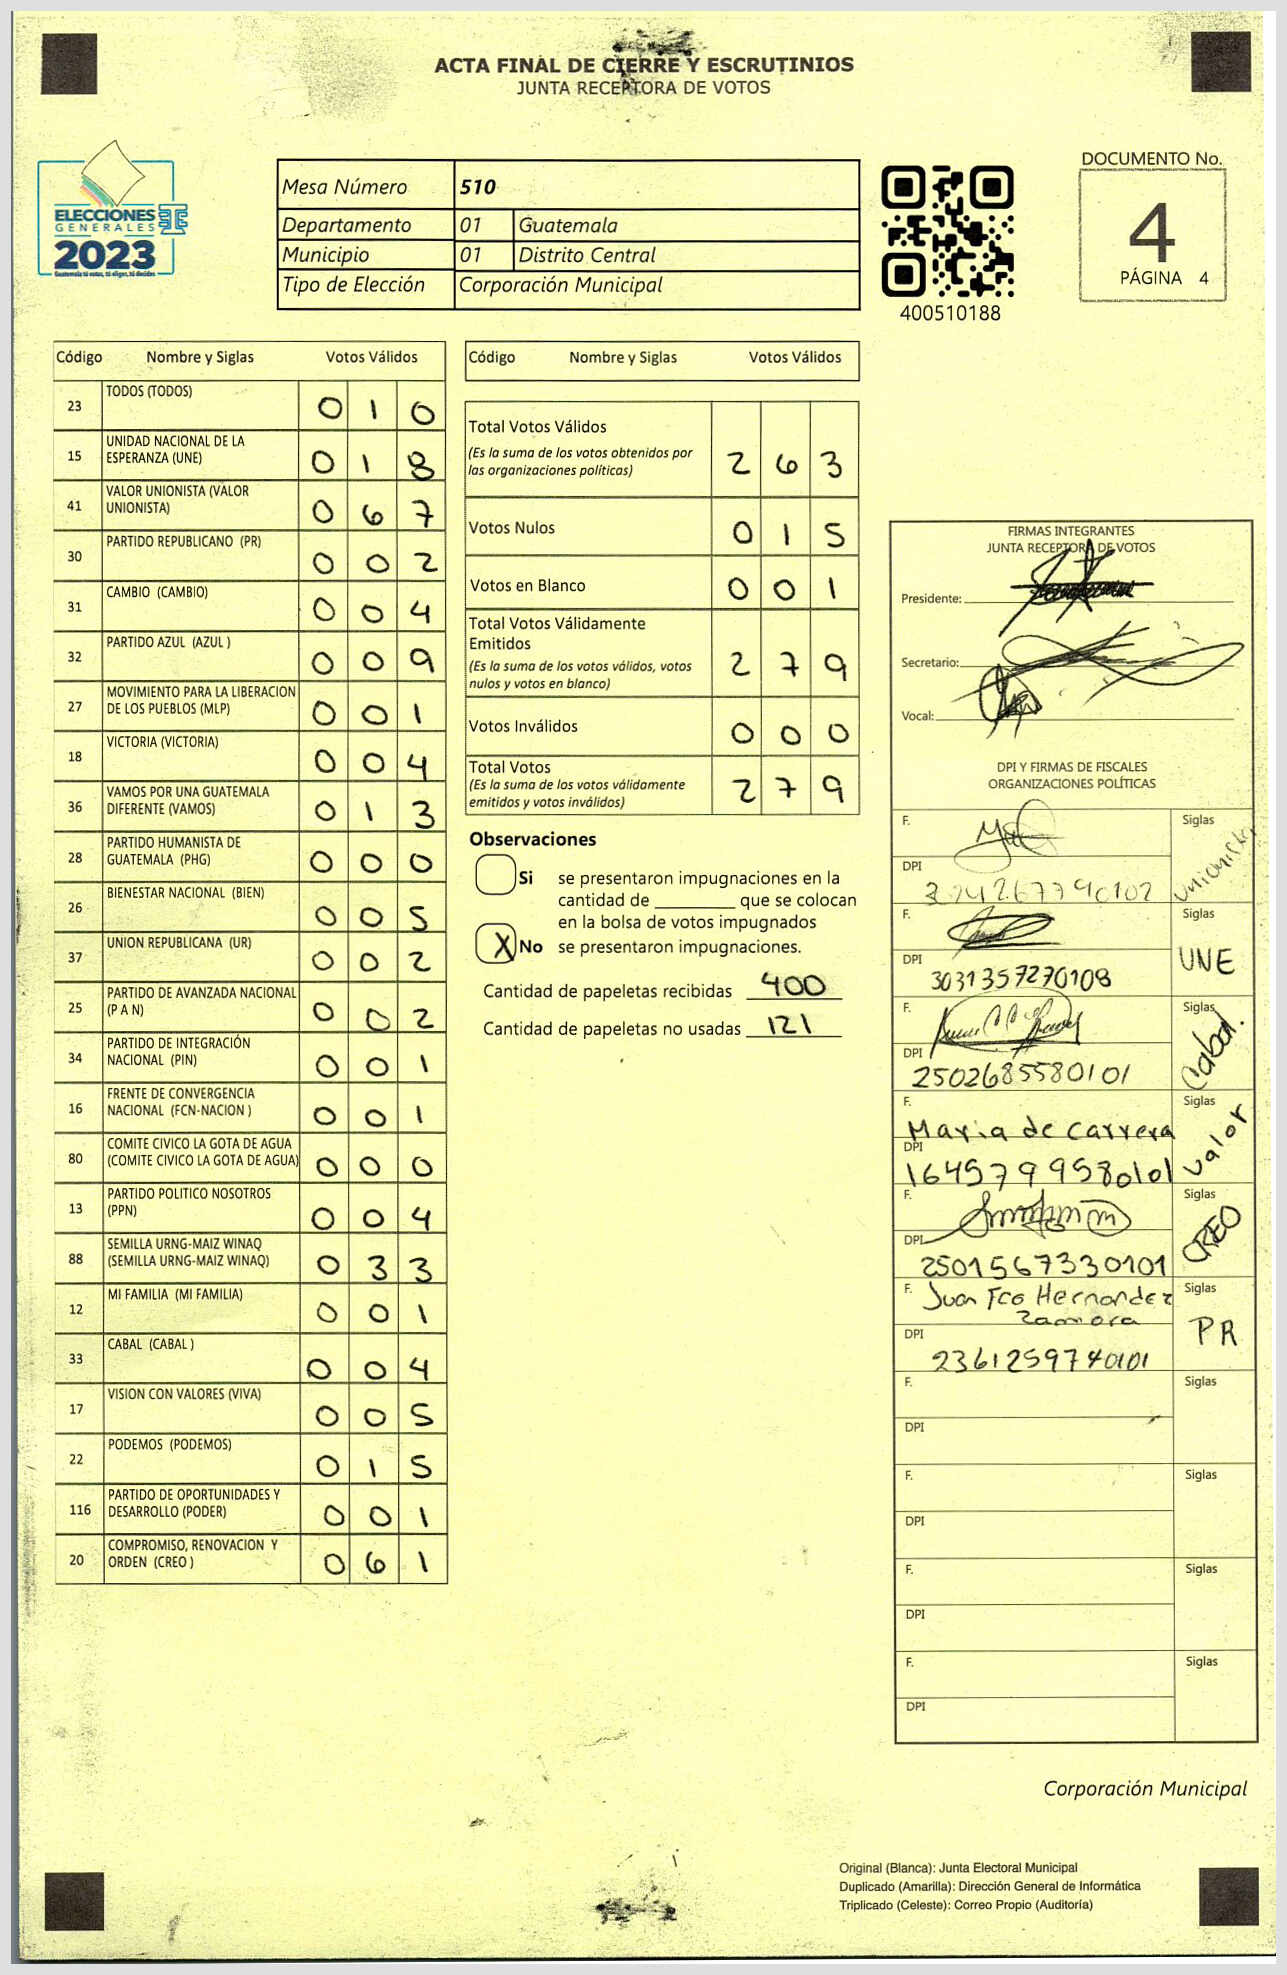 ACTA FINAL DE CIERRE Y ESCRUTINIOS
JUNTA RECEPTORA DE VOTOS
ELECCIONES
GENERALES
2023
Guatemala tú votas, tú eliges, tú decides
Mesa Número 510
Departamento 01 Guatemala
Municipio 01 Distrito Central
Tipo de Elección Corporación Municipal
400510188
DOCUMENTO No.
4
PÁGINA 4
Código Nombre y Siglas Votos Válidos
23 TODOS (TODOS) 0 1 0
15 UNIDAD NACIONAL DE LA
ESPERANZA (UNE) 0 1 8
41 VALOR UNIONISTA (VALOR
UNIONISTA) 0 6 7
30 PARTIDO REPUBLICANO (PR) 0 0 2
31 CAMBIO (CAMBIO) 0 0 4
32 PARTIDO AZUL (AZUL ) 0 0 9
27 MOVIMIENTO PARA LA LIBERACION
DE LOS PUEBLOS (MLP) 0 0 1
18 VICTORIA (VICTORIA) 0 0 4
36 VAMOS POR UNA GUATEMALA
DIFERENTE (VAMOS) 0 1 3
28 PARTIDO HUMANISTA DE
GUATEMALA (PHG) 0 0 0
26 BIENESTAR NACIONAL (BIEN) 0 0 5
37 UNION REPUBLICANA (UR) 0 0 2
25 PARTIDO DE AVANZADA NACIONAL
(P A N) 0 0 2
34 PARTIDO DE INTEGRACIÓN
NACIONAL (PIN) 0 0 1
16 FRENTE DE CONVERGENCIA
NACIONAL (FCN-NACION ) 0 0 1
80 COMITE CIVICO LA GOTA DE AGUA
(COMITE CIVICO LA GOTA DE AGUA) 0 0 0
13 PARTIDO POLITICO NOSOTROS
(PPN) 0 0 4
88 SEMILLA URNG-MAIZ WINAQ
(SEMILLA URNG-MAIZ WINAQ) 0 3 3
12 MI FAMILIA (MI FAMILIA) 0 0 1
33 CABAL (CABAL ) 0 0 4
17 VISION CON VALORES (VIVA) 0 0 5
22 PODEMOS (PODEMOS) 0 1 5
116 PARTIDO DE OPORTUNIDADES Y
DESARROLLO (PODER) 0 0 1
20 COMPROMISO, RENOVACION Y
ORDEN (CREO ) 0 6 1
Código Nombre y Siglas Votos Válidos
Total Votos Válidos
(Es la suma de los votos obtenidos por
las organizaciones políticas) 2 6 3
Votos Nulos 0 1 5
Votos en Blanco 0 0 1
Total Votos Válidamente
Emitidos
(Es la suma de los votos válidos, votos
nulos y votos en blanco) 2 7 9
Votos Inválidos 0 0 0
Total Votos
(Es la suma de los votos válidamente
emitidos y votos inválidos) 2 7 9
Observaciones
Si se presentaron impugnaciones en la
cantidad de ________ que se colocan
en la bolsa de votos impugnados
X No se presentaron impugnaciones.
Cantidad de papeletas recibidas 400
Cantidad de papeletas no usadas 121
FIRMAS INTEGRANTES
JUNTA RECEPTORA DE VOTOS
Presidente:
Secretario:
Vocal:
DPI Y FIRMAS DE FISCALES
ORGANIZACIONES POLÍTICAS
F. Siglas
DPI Unionista
F. Siglas
UNE
DPI 3031357270108
F. Siglas
Cabal.
DPI 2502685580101
F. Siglas
Maria de Carrera
Valor
DPI 1645799580101
F. Siglas
CREO
DPI 2501567330101
F. Juan Fco Hernandez Siglas
Zamora
PR
DPI 2361259740101
F. Siglas
DPI
F. Siglas
DPI
F. Siglas
DPI
F. Siglas
DPI
Corporación Municipal
Original (Blanca): Junta Electoral Municipal
Duplicado (Amarilla): Dirección General de Informática
Triplicado (Celeste): Correo Propio (Auditoría)